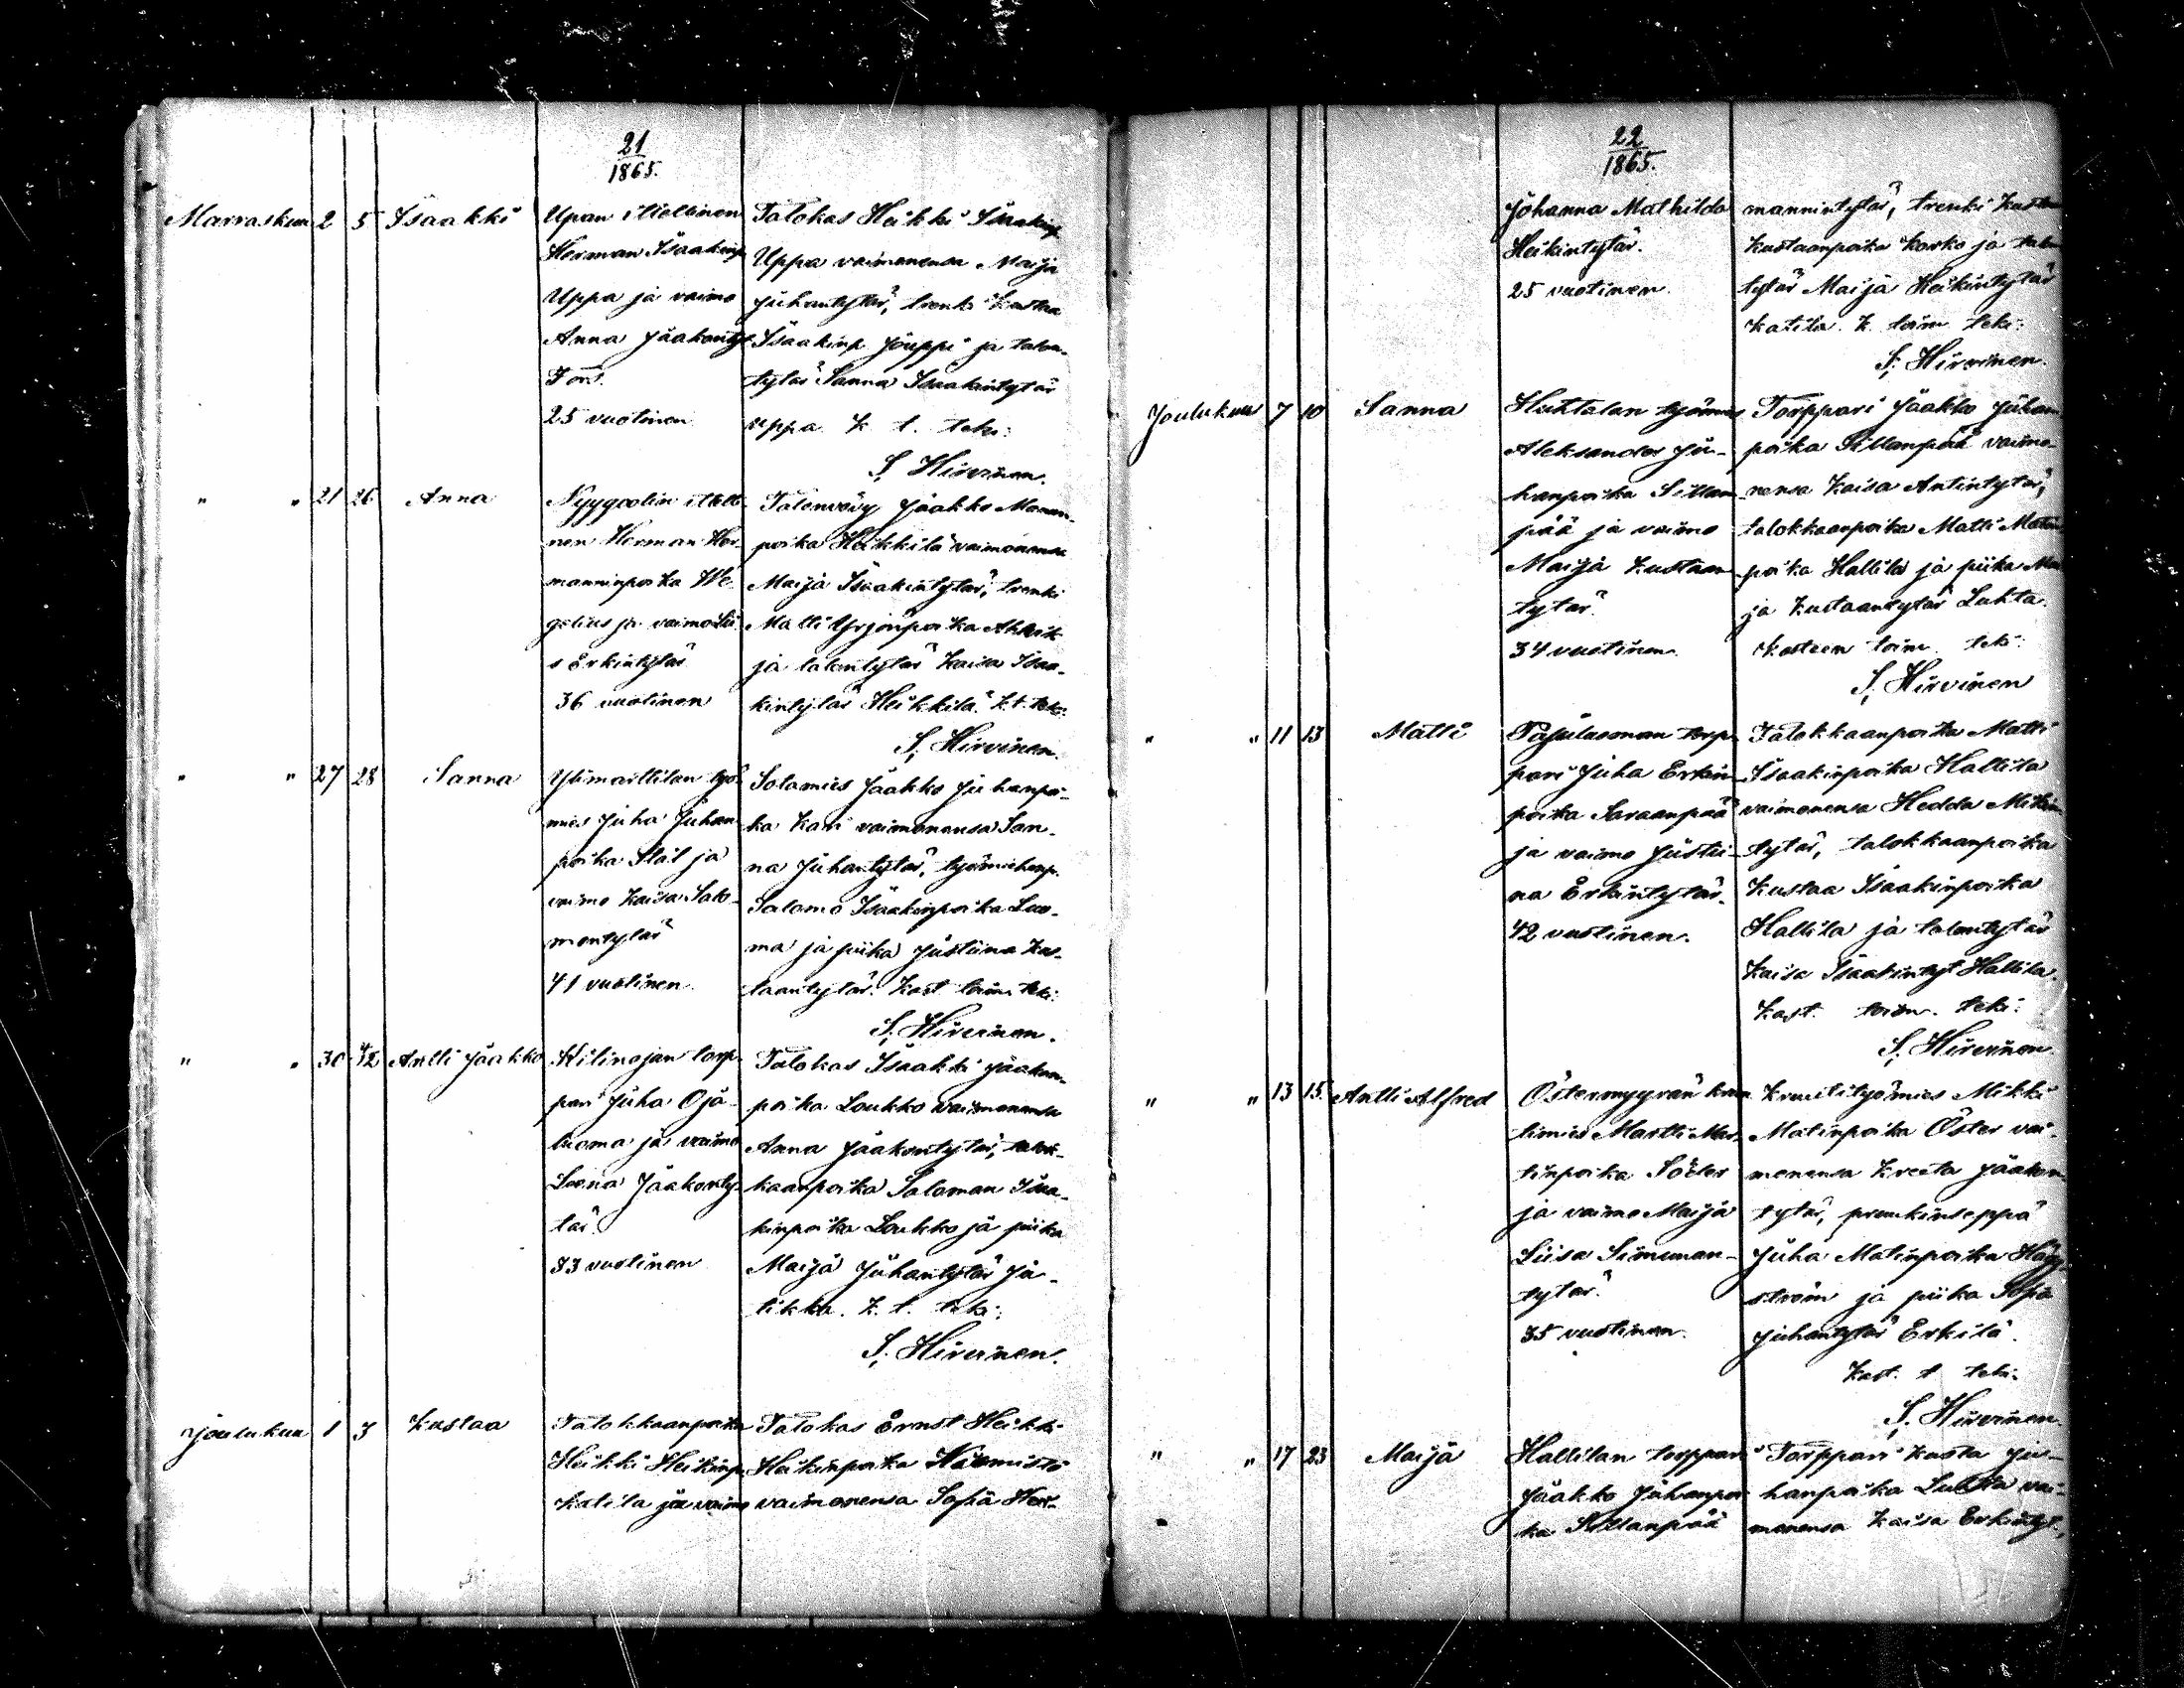 21
1865.
Marraskuu 2 5 Isaakki
Upan itsellinen
Herman Isaakinp
Uppa ja vaimo
Anna Jaakontyt
25 vuotinen
Talokas Heikki Isaakinp
Uppa vaimonensa Maija
Juhantytär, trenki Kustaa
Isaakinp Jouppi ja talon-
tytär Sanna Isaakintytär
Uppa K. t. teki:
S. Hirvinen.
" " 21 26 Anna
Nyygoolin itselli-
nen Herman Her-
manninpoika We-
gelius ja vaimo Lii-
sa Erkintytär
36 vuotinen
Talonvävy Jaakko Manun-
poika Heikkilä vaimonensa
Maija Isaakintytär, trenki
Matti Yrjönpoika
ja talontytär Kaisa Isaa-
kintytär Heikkilä. K.t. teki:
S. Hirvinen.
" " 27 28 Sanna
Ylimarttilan työ-
mies Juha Juhan-
poika Stål ja
vaimo Kaisa Salo-
montytär
41 vuotinen.
Sotamies Jaakko Juhanpoi-
ka Kari vaimonensa San-
na Juhantytär, työmiehenp.
Salomo Isaakinpoika Luo-
ma ja piika Justiina Kus-
taantytär. Kast. toim. teki:
S. Hirvinen.
" " 30 4/12 Antti Jaakko
Kilinojan torp-
pari Juha Oja-
luoma ja vaimo
Leena Jaakonty-
tär.
33 vuotinen
Talokas Isaakki Jaakon-
poika Loukko vaimonensa
Anna Jaakontytär, talok-
kaanpoika Saloman Isaa-
kinpoika Loukko ja piika
Maija Juhantytär Ju-
tikka. K. t. teki:
S. Hirvinen.
Joulukuu 1 3 Kustaa
Talokkaanpoika
Heikki Heikinp
Katila ja vaimo
Talokas Ernst Heikki
Heikinpoika Niemistö
vaimonensa Sofia Her-
22
1865.
Johanna Mathilda
Heikintytär.
25 vuotinen.
mannintytär, trenki Kustaa
Kustaanpoika Korko ja talon
tytär Maija Heikintytär
Katila. K. toim. teki:
S. Hirvinen.
Joulukuu 7 10 Sanna
Huhtalan työmies
Aleksander Ju-
hanpoika Sillan-
pää ja vaimo
Maija Kustaan-
tytär.
34 vuotinen.
Torppari Jaakko Juhan
poika Sillanpää vaimo-
nensa Kaisa Antintytär,
talokkaanpoika Matti Matin
poika Hallila ja piika Mai
ja Kustaantytär Luhta.
Kasteen toim. teki:
S. Hirvinen
" " 11 13 Matti
Pajuluoman torp-
pari Juha Erkin
poika Saraanpää
ja vaimo Justii-
na Erkintytär.
42 vuotinen.
Talokkaanpoika Matti
Isaakinpoika Hallila
vaimonensa Hedda Mikin
tytär, talokkaanpoika
Kustaa Isaakinpoika
Hallila ja talontytär
Kaisa Isaakintyt Hallila.
Kast. toim. teki:
S. Hirvinen.
" " 13 15 Antti Alfred
Östermyyrän kruu
timies Martti Mar-
tinpoika Söder
ja vaimo Maija
Liisa Simunan-
tytär.
35 vuotinen.
Kruutityömies Mikki
Matinpoika Öster vai-
monensa Kreeta Jaakon
tytär, pruukinseppä
Juha Matinpoika Hägg-
ström ja piika Sofia
Juhantytär Erkilä.
Kast. t. teki:
S. Hirvinen.
" " 17 23 Maija
Hallilan torppari
Jaakko Juhanpoi-
ka Sillanpää
Torppari Kusta Ju-
hanpoika Luhta vai-
monensa Kaisa Erkintyt.,